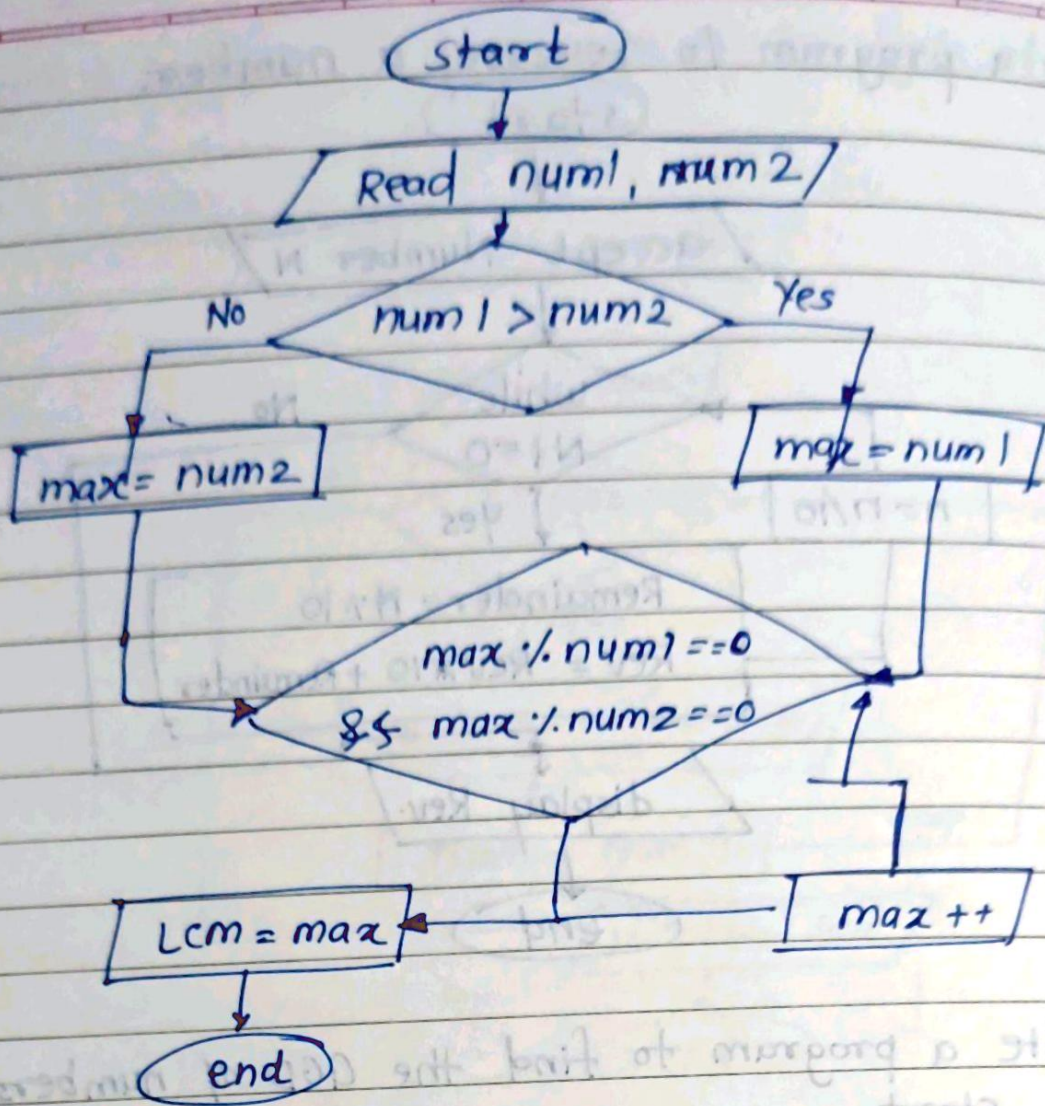 start
Read num1, num2
num1 > num2
No
Yes
max = num2
max = num1
max % num1 == 0
&& max % num2 == 0
LCM = max
max ++
end